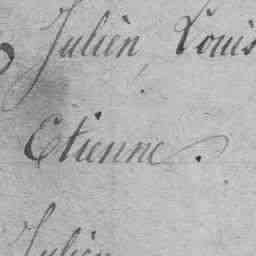 Julien, Louis
Etienne.
Julien